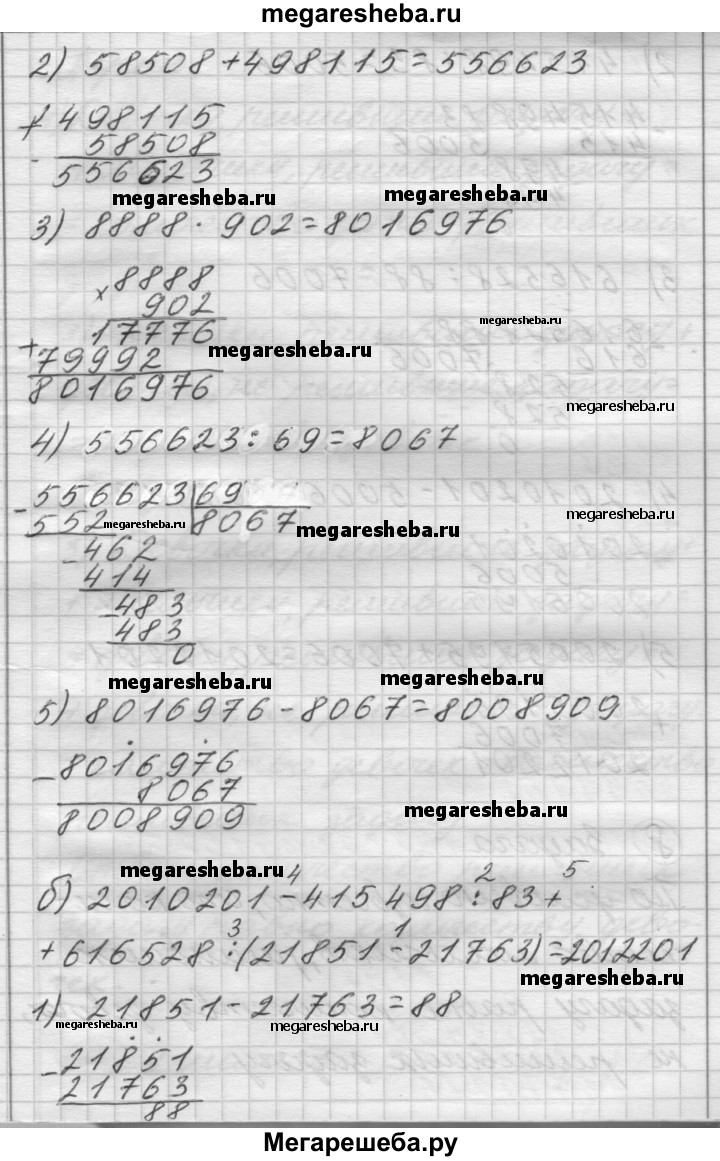 megaresheba.ru
2) 58508+498115=556623
+ 498115
58508
556623
megaresheba.ru
megaresheba.ru
3) 8888 · 902=8016976
× 8888
902
17776
megaresheba.ru
+ 79992
megaresheba.ru
8016976
megaresheba.ru
4) 556623:69=8067
- 556623 69
552 megaresheba.ru 8067 megaresheba.ru
megaresheba.ru
- 462
414
- 483
483
0
megaresheba.ru
megaresheba.ru
5) 8016976-8067=8008909
- 8016976
8067
8008909
megaresheba.ru
megaresheba.ru
4 2 5
б) 2010201-415498:83+
3 1
+616528:(21851-21763)=2012201
megaresheba.ru
1) 21851-21763=88
megaresheba.ru
megaresheba.ru
- 21851
21763
88
Мегарешеба.ру